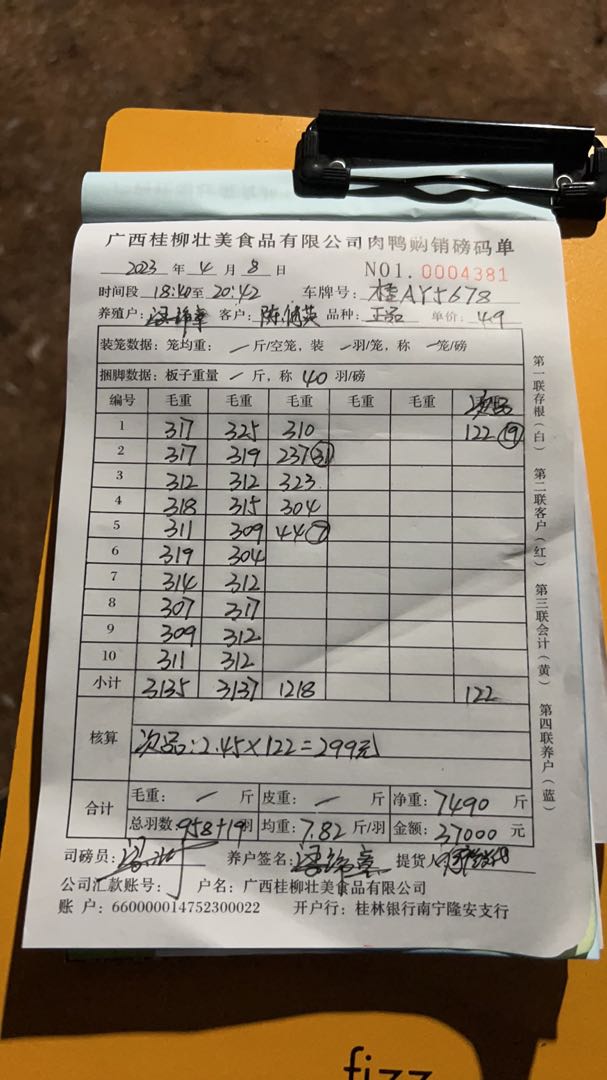 广西桂柳壮美食品有限公司肉鸭购销磅码单
2023 年 4 月 8 日 NO1. 0004381
时间段 18:40至 20:42 车牌号: 桂AY5678
养殖户: 客户: 陈 英 品种: 正品 单价: 4.9
装笼数据: 笼均重: — 斤/空笼, 装 — 羽/笼, 称 — 笼/磅
捆脚数据: 板子重量 — 斤, 称 40 羽/磅
编号 毛重 毛重 毛重 毛重 毛重 次品
1 317 325 310 122 (19)
2 317 319 237 (31)
3 312 312 323
4 318 315 304
5 311 309 44 (7)
6 319 304
7 314 312
8 307 317
9 309 312
10 311 312
小计 3135 3137 1218 122
核算 次品: 2.45×122=299元
合计 毛重: — 斤 皮重: — 斤 净重: 7490 斤
总羽数: 958+19 羽 均重: 7.82 斤/羽 金额: 37000 元
司磅员: 养户签名: 提货人
公司汇款账号: 户名: 广西桂柳壮美食品有限公司
账 户: 660000014752300022 开户行: 桂林银行南宁隆安支行
第一联存根(白) 第二联客户(红) 第三联会计(黄) 第四联养户(蓝)
fizz